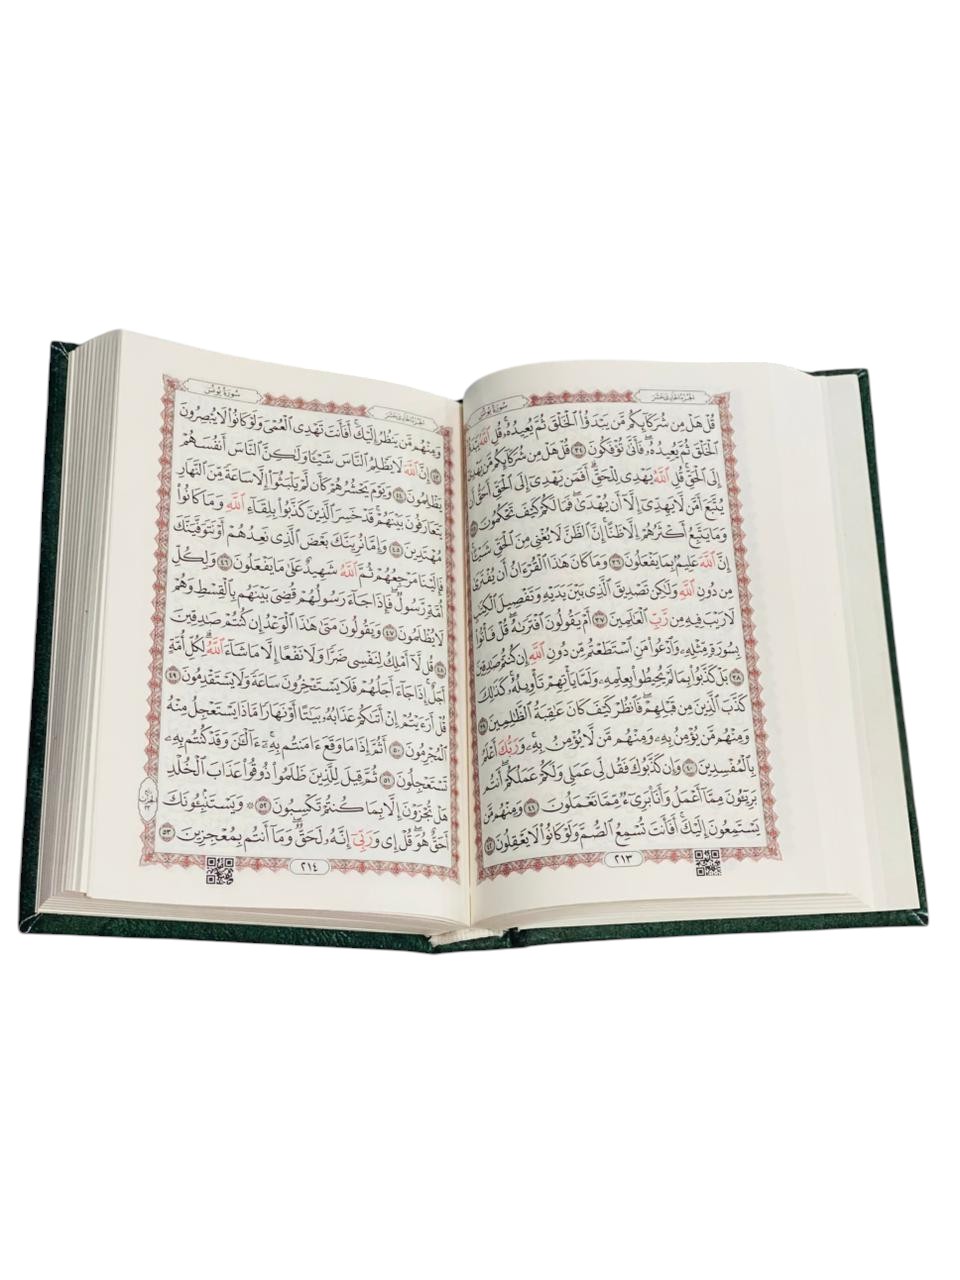 الجزء الحادي عشر
سورة يونس
قُلْ هَلْ مِن شُرَكَآئِكُم مَّن يَبْدَؤُا۟ ٱلْخَلْقَ ثُمَّ يُعِيدُهُۥ ۚ قُلِ ٱللَّهُ
ٱلْخَلْقَ ثُمَّ يُعِيدُهُۥ ۖ فَأَنَّىٰ تُؤْفَكُونَ ٣٤ قُلْ هَلْ مِن شُرَكَآئِكُم مَّن يَهْدِىٓ
إِلَى ٱلْحَقِّ ۚ قُلِ ٱللَّهُ يَهْدِى لِلْحَقِّ ۗ أَفَمَن يَهْدِىٓ إِلَى ٱلْحَقِّ أَحَقُّ أَن
يُتَّبَعَ أَمَّن لَّا يَهِدِّىٓ إِلَّآ أَن يُهْدَىٰ ۖ فَمَا لَكُمْ كَيْفَ تَحْكُمُونَ ٣٥
وَمَا يَتَّبِعُ أَكْثَرُهُمْ إِلَّا ظَنًّا ۚ إِنَّ ٱلظَّنَّ لَا يُغْنِى مِنَ ٱلْحَقِّ شَيْـًٔا ۚ
إِنَّ ٱللَّهَ عَلِيمٌۢ بِمَا يَفْعَلُونَ ٣٦ وَمَا كَانَ هَٰذَا ٱلْقُرْءَانُ أَن يُفْتَرَىٰ
مِن دُونِ ٱللَّهِ وَلَٰكِن تَصْدِيقَ ٱلَّذِى بَيْنَ يَدَيْهِ وَتَفْصِيلَ ٱلْكِتَٰبِ
لَا رَيْبَ فِيهِ مِن رَّبِّ ٱلْعَٰلَمِينَ ٣٧ أَمْ يَقُولُونَ ٱفْتَرَىٰهُ ۖ قُلْ فَأْتُوا۟
بِسُورَةٍ مِّثْلِهِۦ وَٱدْعُوا۟ مَنِ ٱسْتَطَعْتُم مِّن دُونِ ٱللَّهِ إِن كُنتُمْ صَٰدِقِينَ
٣٨ بَلْ كَذَّبُوا۟ بِمَا لَمْ يُحِيطُوا۟ بِعِلْمِهِۦ وَلَمَّا يَأْتِهِمْ تَأْوِيلُهُۥ ۚ كَذَٰلِكَ
كَذَّبَ ٱلَّذِينَ مِن قَبْلِهِمْ ۖ فَٱنظُرْ كَيْفَ كَانَ عَٰقِبَةُ ٱلظَّٰلِمِينَ ٣٩
وَمِنْهُم مَّن يُؤْمِنُ بِهِۦ وَمِنْهُم مَّن لَّا يُؤْمِنُ بِهِۦ ۚ وَرَبُّكَ أَعْلَمُ
بِٱلْمُفْسِدِينَ ٤٠ وَإِن كَذَّبُوكَ فَقُل لِّى عَمَلِى وَلَكُمْ عَمَلُكُمْ ۖ أَنتُم
بَرِيٓـُٔونَ مِمَّآ أَعْمَلُ وَأَنَا۠ بَرِىٓءٌ مِّمَّا تَعْمَلُونَ ٤١ وَمِنْهُم مَّن
يَسْتَمِعُونَ إِلَيْكَ ۚ أَفَأَنتَ تُسْمِعُ ٱلصُّمَّ وَلَوْ كَانُوا۟ لَا يَعْقِلُونَ ٤٢
٢١٣
الجزء الحادي عشر
سورة يونس
وَمِنْهُم مَّن يَنظُرُ إِلَيْكَ ۚ أَفَأَنتَ تَهْدِى ٱلْعُمْىَ وَلَوْ كَانُوا۟ لَا يُبْصِرُونَ
٤٣ إِنَّ ٱللَّهَ لَا يَظْلِمُ ٱلنَّاسَ شَيْـًٔا وَلَٰكِنَّ ٱلنَّاسَ أَنفُسَهُمْ
يَظْلِمُونَ ٤٤ وَيَوْمَ يَحْشُرُهُمْ كَأَن لَّمْ يَلْبَثُوٓا۟ إِلَّا سَاعَةً مِّنَ ٱلنَّهَارِ
يَتَعَارَفُونَ بَيْنَهُمْ ۚ قَدْ خَسِرَ ٱلَّذِينَ كَذَّبُوا۟ بِلِقَآءِ ٱللَّهِ وَمَا كَانُوا۟
مُهْتَدِينَ ٤٥ وَإِمَّا نُرِيَنَّكَ بَعْضَ ٱلَّذِى نَعِدُهُمْ أَوْ نَتَوَفَّيَنَّكَ
فَإِلَيْنَا مَرْجِعُهُمْ ثُمَّ ٱللَّهُ شَهِيدٌ عَلَىٰ مَا يَفْعَلُونَ ٤٦ وَلِكُلِّ
أُمَّةٍ رَّسُولٌ ۖ فَإِذَا جَآءَ رَسُولُهُمْ قُضِىَ بَيْنَهُم بِٱلْقِسْطِ وَهُمْ
لَا يُظْلَمُونَ ٤٧ وَيَقُولُونَ مَتَىٰ هَٰذَا ٱلْوَعْدُ إِن كُنتُمْ صَٰدِقِينَ
٤٨ قُل لَّآ أَمْلِكُ لِنَفْسِى ضَرًّا وَلَا نَفْعًا إِلَّا مَا شَآءَ ٱللَّهُ ۗ لِكُلِّ أُمَّةٍ
أَجَلٌ ۚ إِذَا جَآءَ أَجَلُهُمْ فَلَا يَسْتَـْٔخِرُونَ سَاعَةً وَلَا يَسْتَقْدِمُونَ ٤٩
قُلْ أَرَءَيْتُمْ إِنْ أَتَىٰكُمْ عَذَابُهُۥ بَيَٰتًا أَوْ نَهَارًا مَّاذَا يَسْتَعْجِلُ مِنْهُ
ٱلْمُجْرِمُونَ ٥٠ أَثُمَّ إِذَا مَا وَقَعَ ءَامَنتُم بِهِۦٓ ۚ ءَآلْـَٰٔنَ وَقَدْ كُنتُم بِهِۦ
تَسْتَعْجِلُونَ ٥١ ثُمَّ قِيلَ لِلَّذِينَ ظَلَمُوا۟ ذُوقُوا۟ عَذَابَ ٱلْخُلْدِ
هَلْ تُجْزَوْنَ إِلَّا بِمَا كُنتُمْ تَكْسِبُونَ ٥٢ ۞ وَيَسْتَنۢبِـُٔونَكَ
أَحَقٌّ هُوَ ۖ قُلْ إِى وَرَبِّىٓ إِنَّهُۥ لَحَقٌّ ۖ وَمَآ أَنتُم بِمُعْجِزِينَ ٥٣
٢١٤